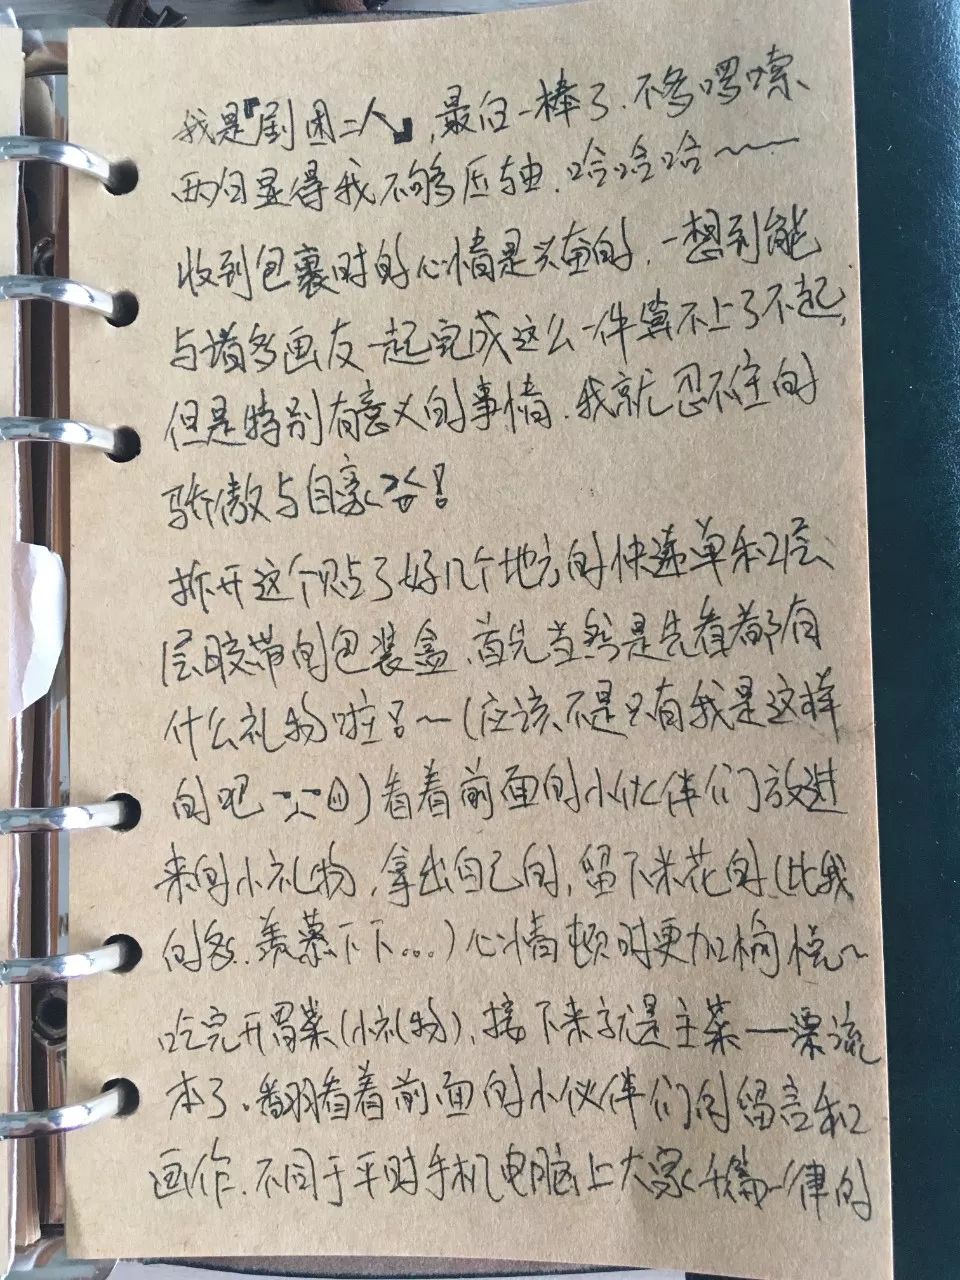 我是『剧团二人』,最后一棒了.不多啰嗦、
两句显得我不够压轴.哈哈哈~~~
收到包裹时的心情是兴奋的,一想到能
与诸多画友一起完成这么一件算不上了不起,
但是特别有意义的事情.我就忍不住的
骄傲与自豪!
拆开这个贴了好几个地方的快递单和层
层胶带的包装盒.首先当然是先看都有
什么礼物啦!~(应该不是只有我是这样
的吧)看着前面的小伙伴们放进
来的小礼物,拿出自己的,留下米花的(比我
的多.羡慕下下...)心情顿时更加愉悦~
吃完开胃菜(小礼物),接下来就是主菜——漂流
本了.翻看着前面的小伙伴们的留言和
画作.不同于平时手机电脑上大家千篇一律的